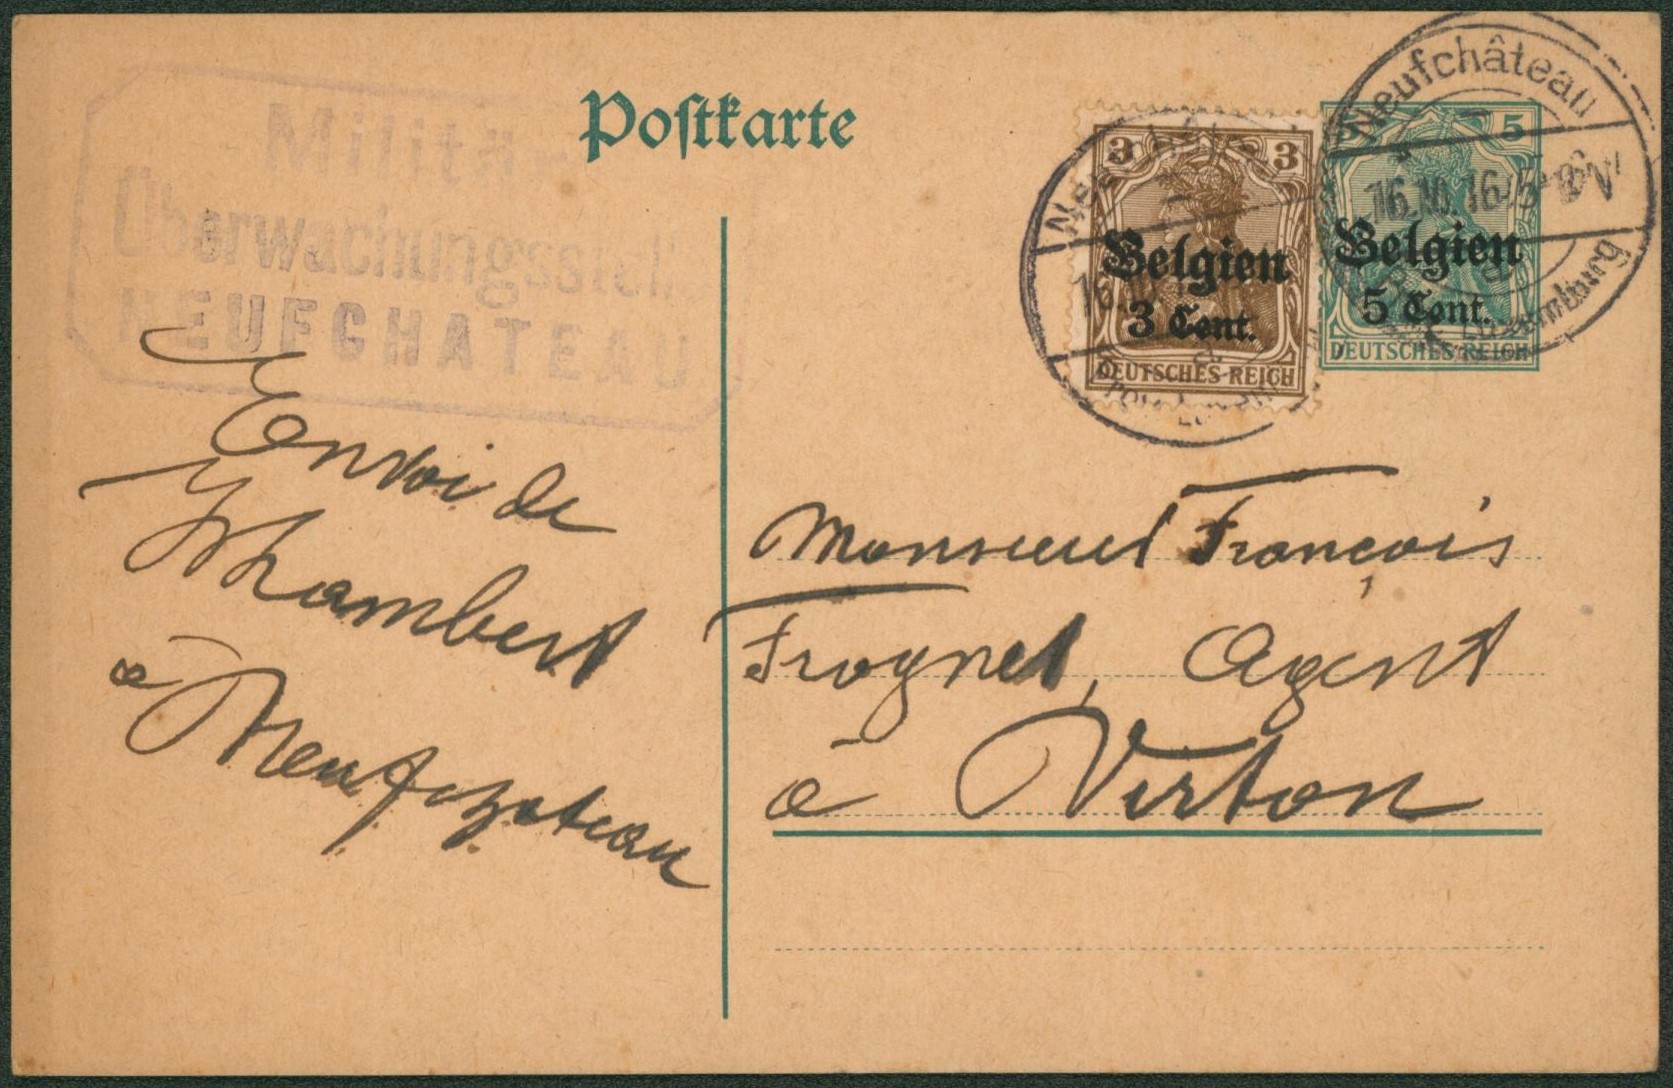 Postkarte
Militä-
Überwachungsstelle
NEUFCHATEAU
3 3
Belgien
3 Cent.
DEUTSCHES REICH
5
Belgien
5 Cent.
DEUTSCHES REICH
Neufchâteau
16.10.16.5-6N
Luxemburg
16.
Envoi de
Jhambert
à Neufchateau
Monsieur François
Frognet, Agent
à Virton